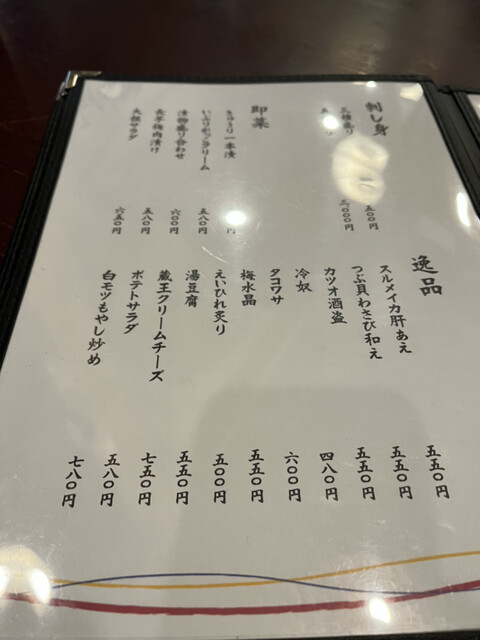 刺し身
三種盛り 五00円
三,000円
即菜
きゅうり一本漬 円
いぶりがっこクリーム 五八0円
漬物盛り合わせ 六00円
長芋梅肉漬け 五八0円
大根サラダ 六五0円
逸品
スルメイカ肝あえ 五五0円
つぶ貝わさび和え 五五0円
カツオ酒盗 五五0円
冷奴 四八0円
タコワサ 六00円
梅水晶 五五0円
えいひれ炙り 五00円
湯豆腐 五五0円
蔵王クリームチーズ 七五0円
ポテトサラダ 五八0円
白モツもやし炒め 七八0円